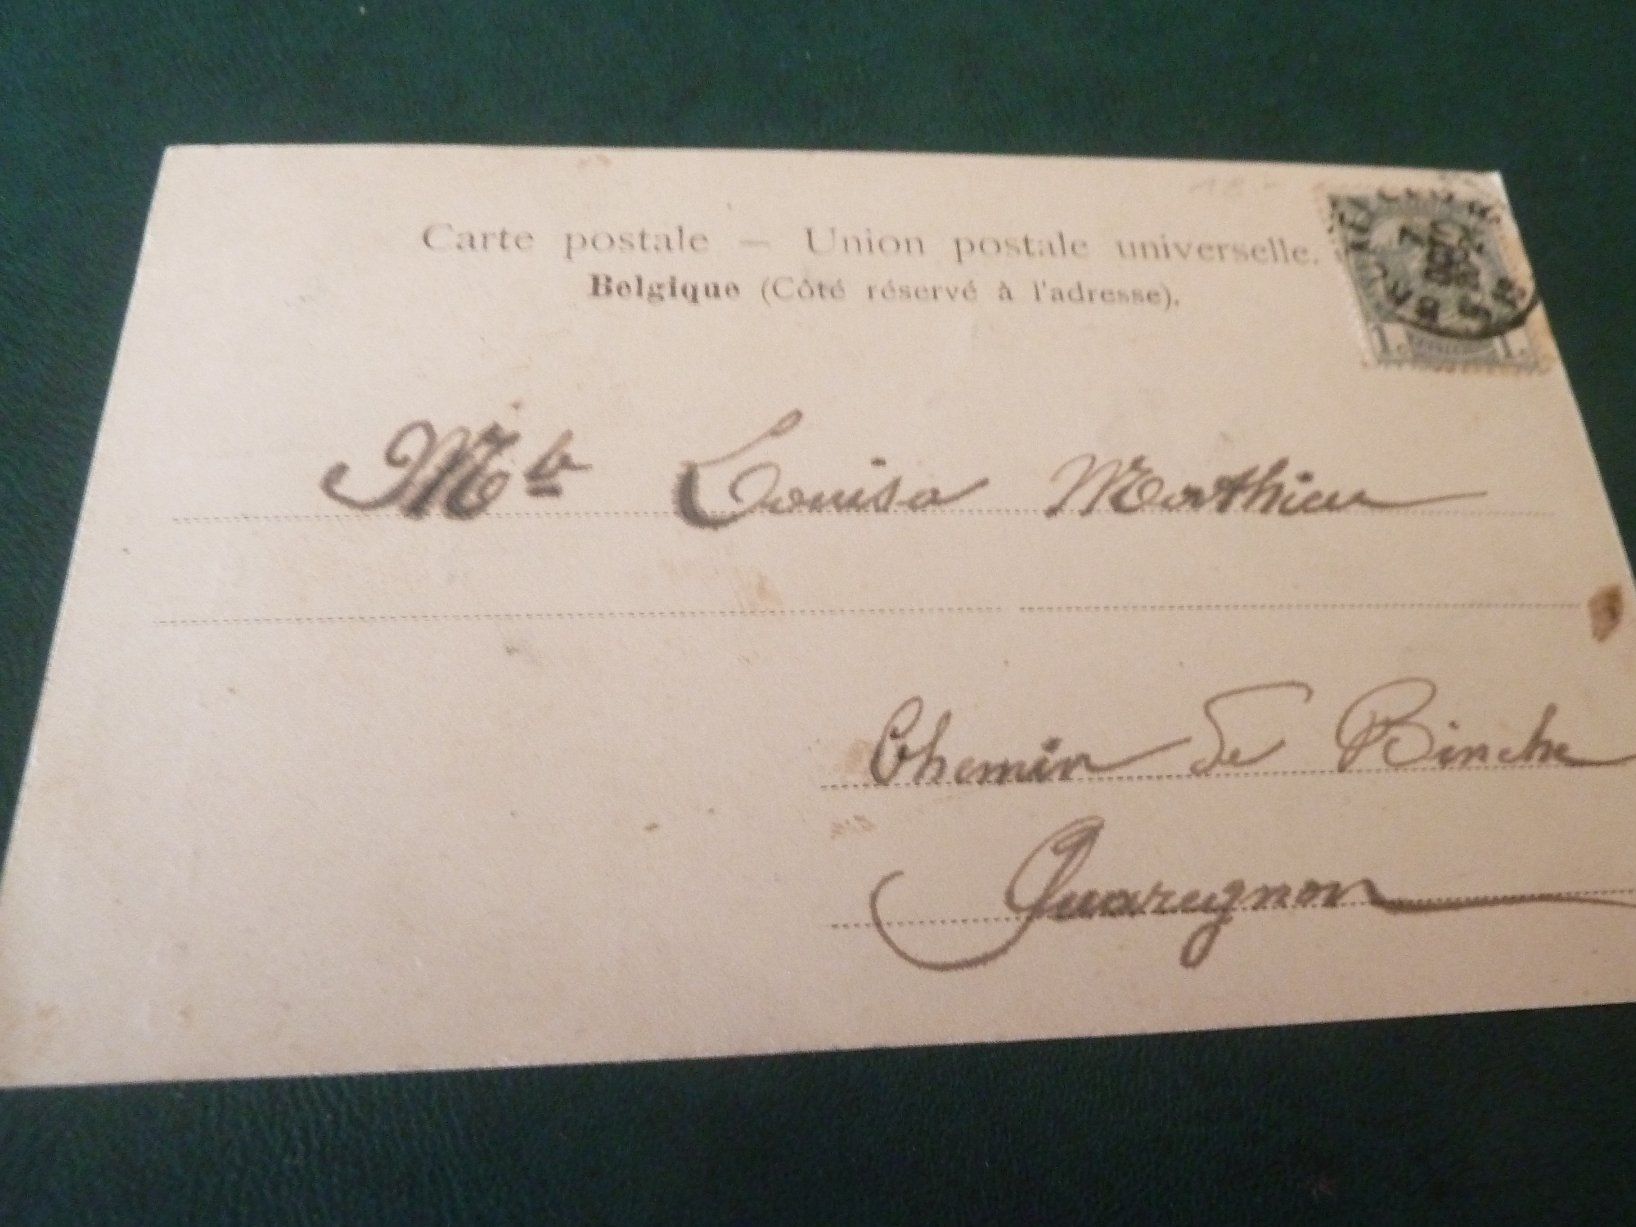 Carte postale — Union postale universelle.
Belgique (Côté réservé à l'adresse).
1c 1c
Mlle Louisa Mathieu
Chemin de Binche
Quaregnon